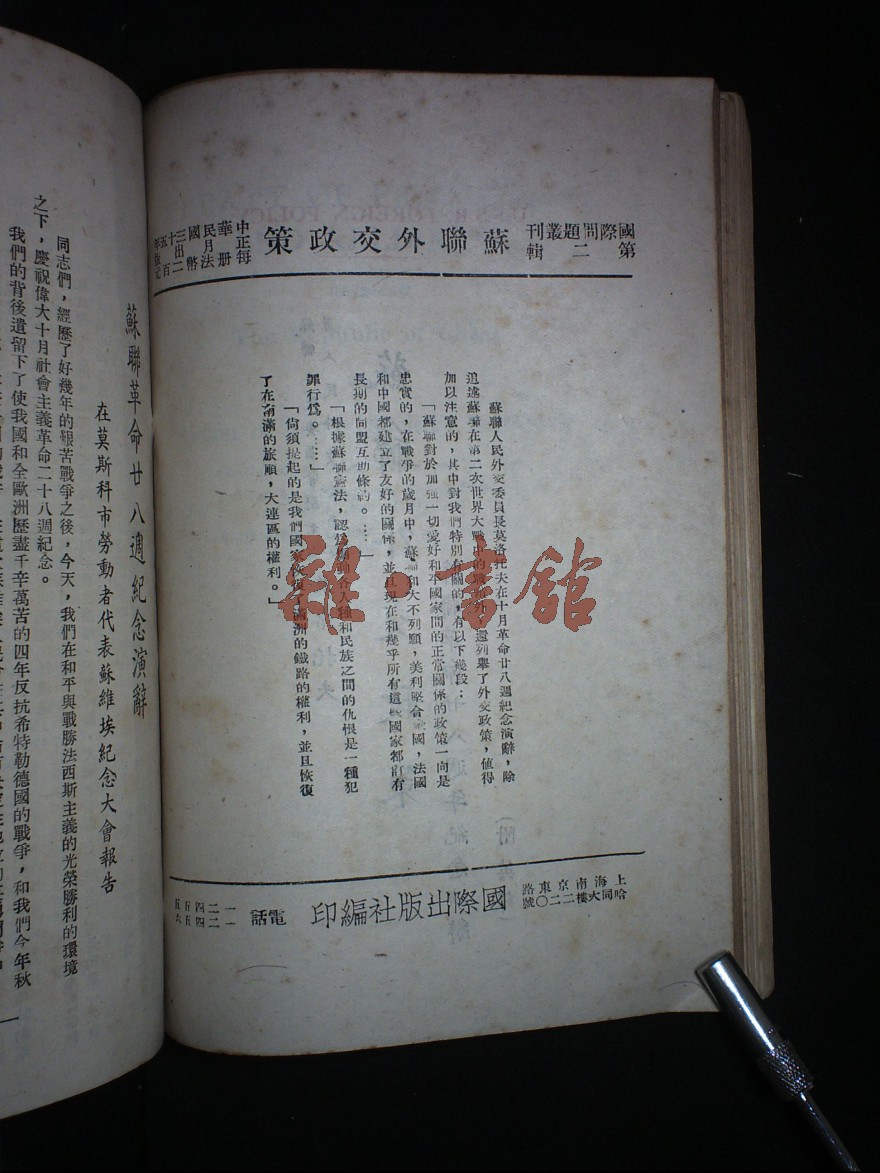 國際問題叢刊
第二輯
蘇聯外交政策
中華民國三十五年
正月出版
每册法幣二百元
蘇聯人民外交委員長莫洛托夫在十月革命廿八週紀念演辭，除
追述蘇聯在第二次世界大戰中的戰功外，還列舉了外交政策，値得
加以注意的，其中對我們特別有關的，有以下幾段：
「蘇聯對於加強一切愛好和平國家間的正常關係的政策一向是
忠實的，在戰爭的歲月中，蘇聯和大不列顚，美利堅合衆國，法國
和中國都建立了友好的關係，並且現在和幾乎所有這些國家都訂有
長期的同盟互助條約。……」
「根據蘇聯憲法，認爲煽動各人種和民族之間的仇恨是一種犯
罪行爲。……」
「尙須提起的是我們國家收復了滿洲的鐵路的權利，並且恢復
了在南滿的旅順，大連區的權利。」
上海南京東路
哈同大樓二二〇號
國際出版社編印
電話
一二四五五
一二四五六
蘇聯革命廿八週紀念演辭
在莫斯科市勞動者代表蘇維埃紀念大會報告
同志們，經歷了好幾年的艱苦戰爭之後，今天，我們在和平與戰勝法西斯主義的光榮勝利的環境
之下，慶祝偉大十月社會主義革命二十八週紀念。
我們的背後遺留下了使我國和全歐洲歷盡千辛萬苦的四年反抗希特勒德國的戰爭，和我們今年秋
一
雜·書館